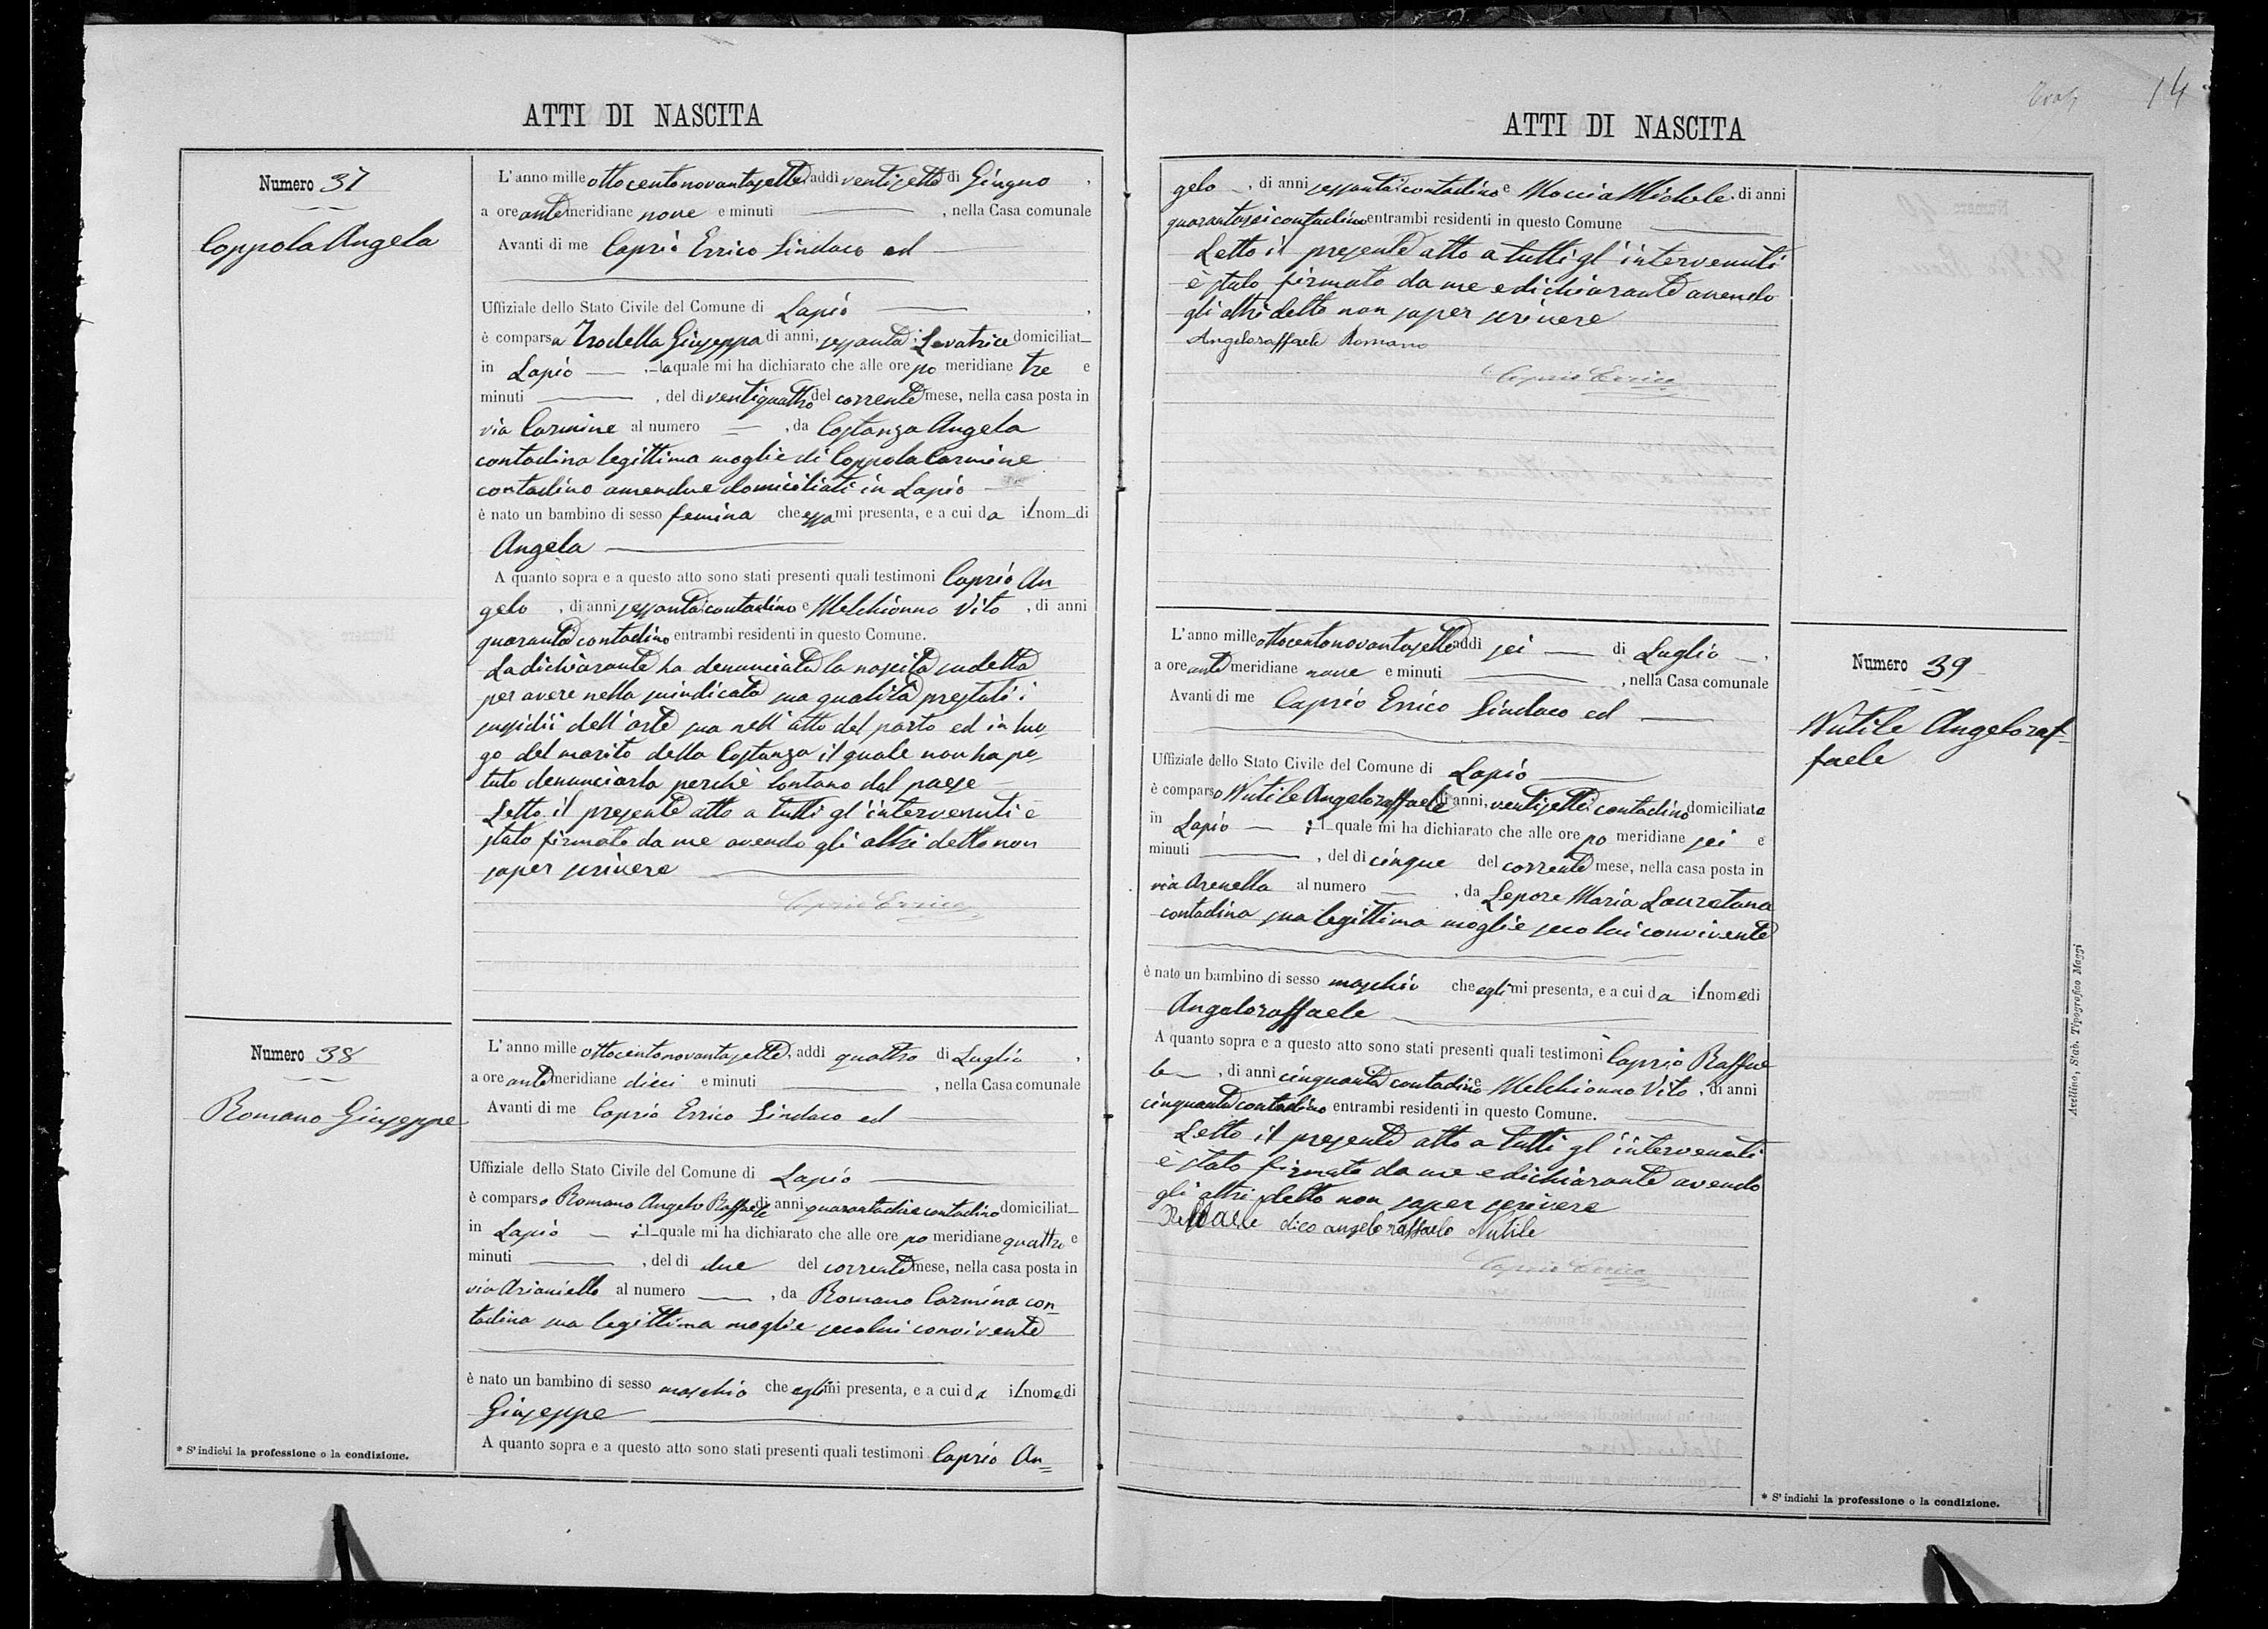 ATTI DI NASCITA
Numero 37
Coppola Angela
L'anno mille ottocentonovantasette, addi ventisette di Giugno,
a ore antemeridiane nove e minuti , nella Casa comunale
Avanti di me Caprio Errico Sindaco ed
Uffiziale dello Stato Civile del Comune di Lapio
è comparsa Trodella Giuseppa di anni, sessanta, Levatrice domiciliat
in Lapio , la quale mi ha dichiarato che alle ore po meridiane tre e
minuti , del di ventiquattro del corrente mese, nella casa posta in
via Carmine al numero , da Costanza Angela
contadina legittima moglie di Coppola Carmine
contadino amendue domiciliati in Lapio
è nato un bambino di sesso femina che essa mi presenta, e a cui da il nom di
Angela
A quanto sopra e a questo atto sono stati presenti quali testimoni Caprio An-
gelo , di anni sessanta contadino e Melchionno Vito , di anni
quaranta contadino entrambi residenti in questo Comune.
La dichiarante ha denunciata la nascita sudetta
per avere nella suindicata sua qualità prestati i
sussidii dell'arte sua nell'atto del parto ed in luo-
go del marito della Costanza il quale non ha po-
tuto denunciarla perchè lontano dal paese
Letto il presente atto a tutti gl'intervenuti è
stato firmato da me avendo gli altri detto non
saper scrivere
Caprio Errico
Numero 38
Romano Giuseppe
L'anno mille ottocentonovantasette, addi quattro di Luglio ,
a ore antemeridiane dieci e minuti , nella Casa comunale
Avanti di me Caprio Errico Sindaco ed
Uffiziale dello Stato Civile del Comune di Lapio
è comparso Romano Angelo Raffaele di anni, contadino domiciliat
in Lapio il quale mi ha dichiarato che alle ore po meridiane quattro e
minuti , del di due del corrente mese, nella casa posta in
via Arianiello al numero , da Romano Carmina con-
tadina sua legittima moglie secolui convivente
è nato un bambino di sesso maschio che egli mi presenta, e a cui da il nome di
Giuseppe
A quanto sopra e a questo atto sono stati presenti quali testimoni Caprio An-
* S'indichi la professione o la condizione.
14
ATTI DI NASCITA
gelo , di anni sessanta contadino e Moccia Michele, di anni
quarantasei contadino entrambi residenti in questo Comune
Letto il presente atto a tutti gl'intervenuti
è stato firmato da me e dichiarante avendo
gli altri detto non saper scrivere
Angeloraffaele Romano
Caprio Errico
Numero 39
Nutile Angeloraf-
faele
L'anno mille ottocentonovantasette addi sei di Luglio ,
a ore antemeridiane nove e minuti , nella Casa comunale
Avanti di me Caprio Errico Sindaco ed
Uffiziale dello Stato Civile del Comune di Lapio
è comparso Nutile Angeloraffaele di anni, ventisette, contadino domiciliato
in Lapio , il quale mi ha dichiarato che alle ore po meridiane sei e
minuti , del di cinque del corrente mese, nella casa posta in
via Arenella al numero , da Lepore Maria Lauretana
contadina sua legittima moglie seco lui convivente
è nato un bambino di sesso maschio che egli mi presenta, e a cui da il nome di
Angeloraffaele
A quanto sopra e a questo atto sono stati presenti quali testimoni Caprio Raffae-
le , di anni cinquanta contadino e Melchionno Vito , di anni
cinquanta contadino entrambi residenti in questo Comune.
Letto il presente atto a tutti gl'intervenuti
è stato firmato da me e dichiarante avendo
gli altri detto non saper scrivere
dico angelo raffaele Nutile
Caprio Errico
Avellino, Stab. Tipografico Maggi
* S'indichi la professione o la condizione.